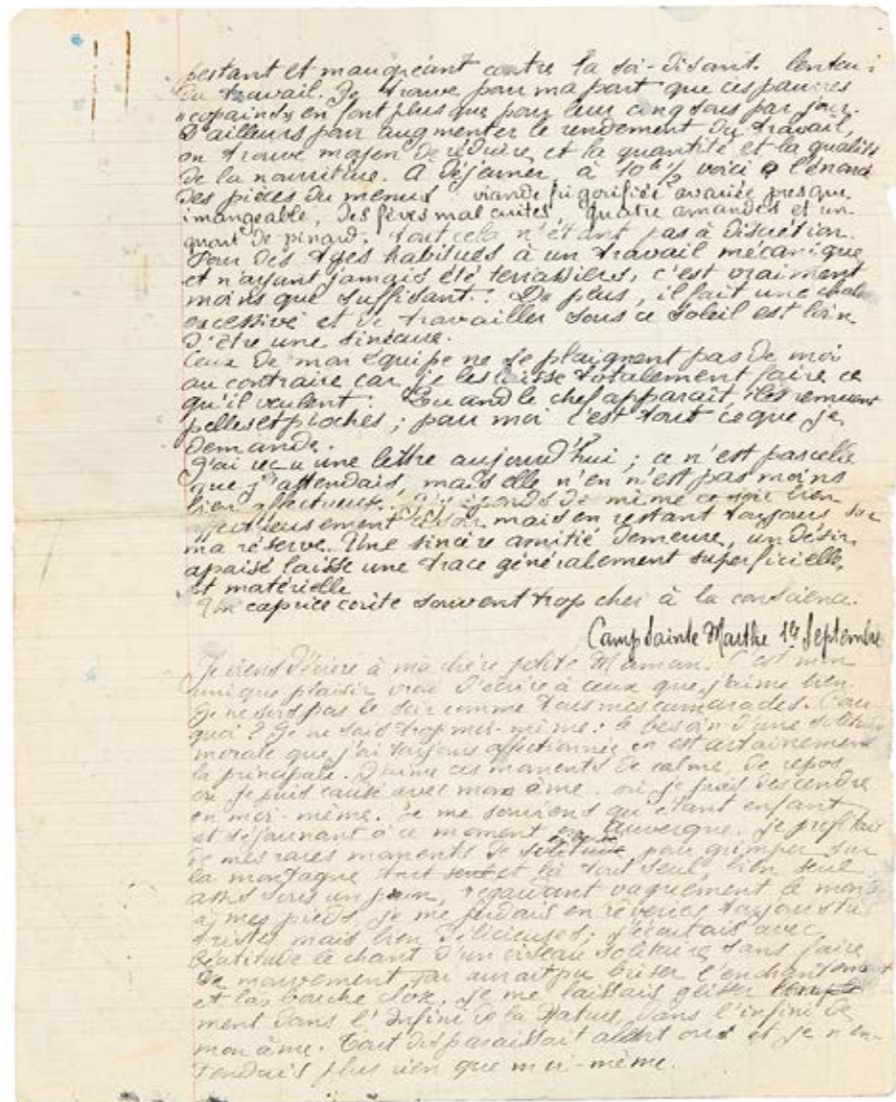 pestant et maugréant contre la soi-disant lenteur
du travail. Je trouve pour ma part que ces pauvres
"copains" en font plus que pour leur cinq sous par jour.
D'ailleurs pour augmenter le rendement du travail,
on trouve moyen de réduire et la quantité et la qualité
de la nourriture. A déjeuner, à 10h1/2 voici l'énoncé
des pièces du menus : viande frigorifiée avariée presque
imangeable, des fèves mal cuites, quatre amandes et un
quart de pinard. Tout cela n'étant pas à discrétion.
Pour des types habitués à un travail mécanique
et n'ayant jamais été terrassiers, c'est vraiment
moins que suffisant. De plus, il fait une chaleur
excessive et de travailler sous ce soleil est loin
d'être une sinécure.
Ceux de mon équipe ne se plaignent pas de moi
au contraire car je les laisse totalement faire ce
qu'il veulent : Quand le chef apparaît, ils remuent
pelles et pioches ; pour moi c'est tout ce que je
demande.
J'ai reçu une lettre aujourd'hui ; ce n'est pas celle
que j'attendais, mais elle n'en n'est pas moins
bien affectueuse. J'y réponds de même bien
affectueusement mais en restant toujours sur
ma réserve. Une sincère amitié demeure, un désir
apaisé laisse une trace généralement superficielle
et matérielle
Un caprice coûte souvent trop cher à la conscience.
Camp Sainte Marthe 1er Septembre
Je viens d'écrire à ma chère petite Maman. C'est mon
unique plaisir vrai d'écrire à ceux que j'aime bien.
Je ne sors pas le soir comme tous mes camarades. Pour
quoi ? Je ne sais trop moi-même : le besoin d'une solitude
morale que j'ai toujours affectionnée en est certainement
la principale. J'aime ces moments de calme, de repos
où je puis causé avec mon âme, où je puis descendre
en moi-même. Je me souviens qu'étant enfant
et séjournant à ce moment en Auvergne, je profitais
de mes rares moments de solitude pour grimper sur
la montagne tout seul et là tout seul, bien seul
assis sous un pin, regardant vaguement le monde
à mes pieds je me perdais en rêveries toujours très
tristes mais bien délicieuses ; j'écoutais avec
béatitude le chant d'un oiseau solitaire sans faire
de mouvement qui aurait pu briser l'enchantement
et la bouche close, je me laissais glisser
ment dans l'Infini de la Nature, dans l'infini de
mon âme. Tout disparaissait alors et je n'en-
tendais plus rien que moi-même.